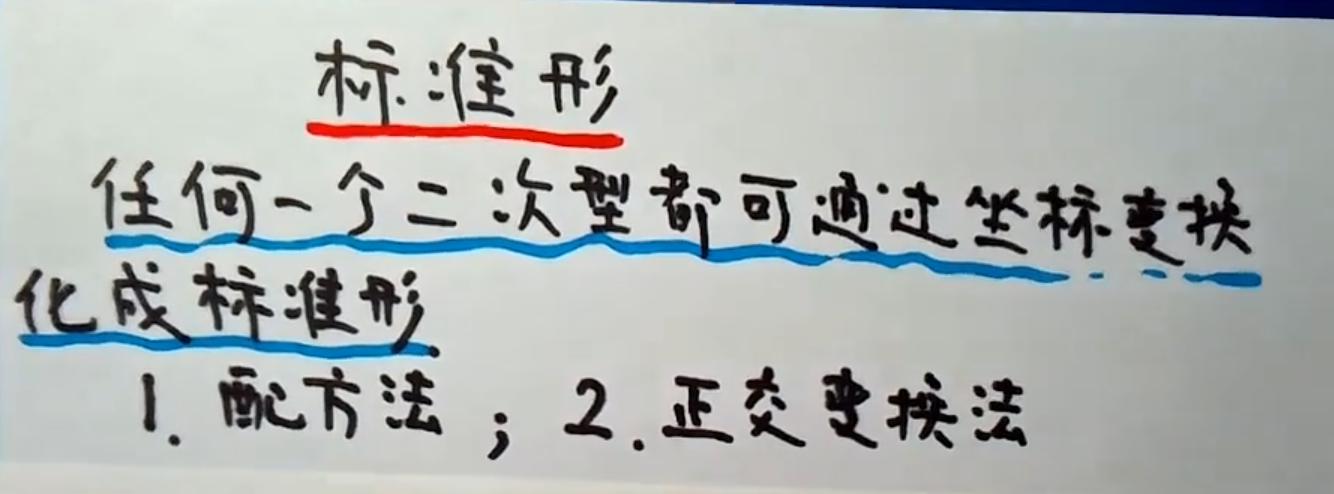 标准形
任何一个二次型都可通过坐标变换
化成标准形.
1. 配方法 ; 2. 正交变换法